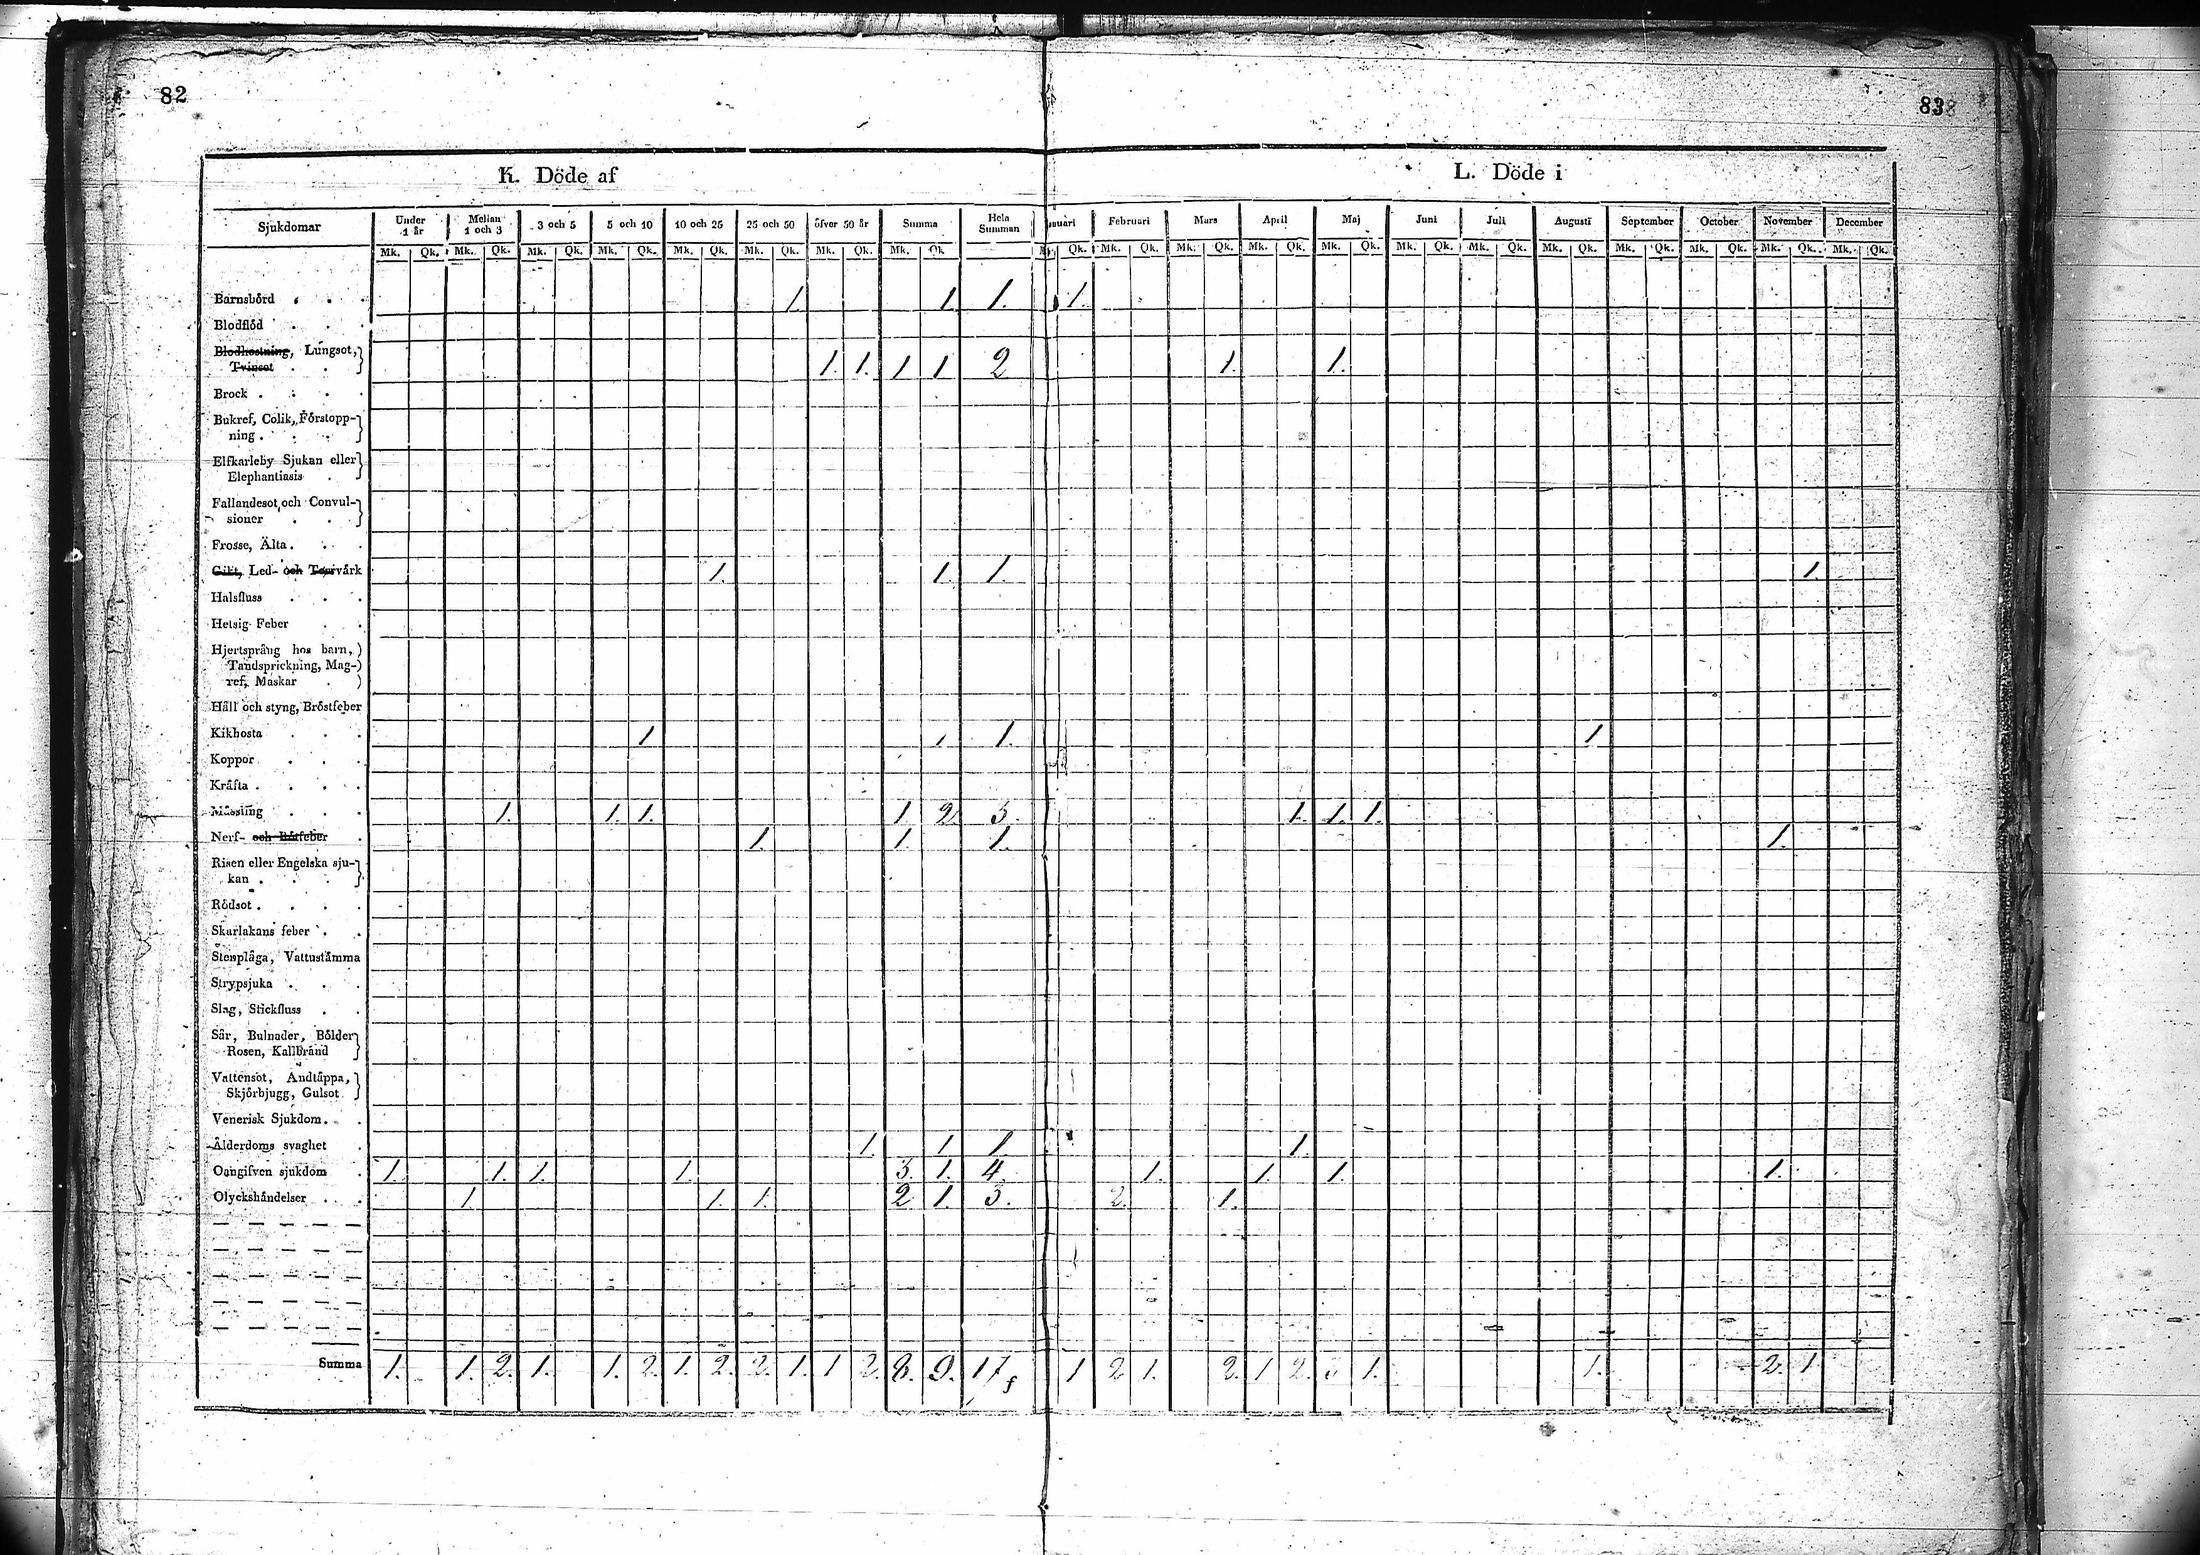 82
83
K. Döde af
L. Döde i
Sjukdomar Under 1 år Mellan 1 och 3 3 och 5 5 och 10 10 och 25 25 och 50 öfver 50 år Summa Hela Summan Januari Februari Mars April Maj Juni Juli Augusti September October November December
Mk. Qk. Mk. Qk. Mk. Qk. Mk. Qk. Mk. Qk. Mk. Qk. Mk. Qk. Mk. Qk. Mk. Qk. Mk. Qk. Mk. Qk. Mk. Qk. Mk. Qk. Mk. Qk. Mk. Qk. Mk. Qk. Mk. Qk. Mk. Qk. Mk. Qk. Mk. Qk.
Barnsbörd . . . 1. 1. 1. 1.
Blodflöd . . .
Blodhostning, Lungsot,
Tvinsot . . 1. 1. 1 1 2 1. 1.
Brock . . . .
Bukref, Colik, Förstopp-
ning . . .
Elfkarleby Sjukan eller
Elephantiasis .
Fallandesot och Convul-
sioner . .
Frosse, Älta . . .
Gikt, Led- och Torrvärk 1. 1. 1. 1
Halsfluss . . .
Hetsig Feber . .
Hjertsprång hos barn,
Tandsprickning, Mag-
ref, Maskar .
Håll och styng, Bröstfeber
Kikhosta . . . 1 1 1. 1
Koppor . . .
Kräfta . . . .
Mässling . . . 1. 1. 1. 1 2. 3 1. 1. 1.
Nerf- och Rötfeber . 1. 1 1. 1.
Risen eller Engelska sju-
kan . . .
Rödsot . . . .
Skarlakans feber . .
Stenplåga, Vattustämma
Strypsjuka . . .
Slag, Stickfluss . .
Sår, Bulnader, Bölder
Rosen, Kallbrand
Vattensot, Andtäppa,
Skjörbjugg, Gulsot
Venerisk Sjukdom . .
Ålderdoms svaghet . 1. 1 1 1.
Oangifven sjukdom . 1. 1. 1. 1. 3. 1. 4 1. 1. 1. 1.
Olyckshändelser . . . 1 1. 1. 2 1. 3. 2. 1.
Summa 1. 1. 2. 1. 1. 2. 1. 2. 2. 1. 1 2. 8. 9. 17 1 2 1. 2. 1 2. 3 1. 1. 2. 1.